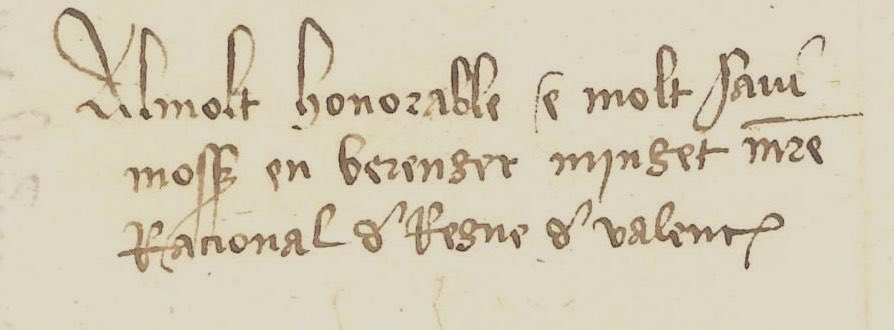 Al molt honorable e molt savi
moss en berenger minget mre
Racional d Regne d valenc